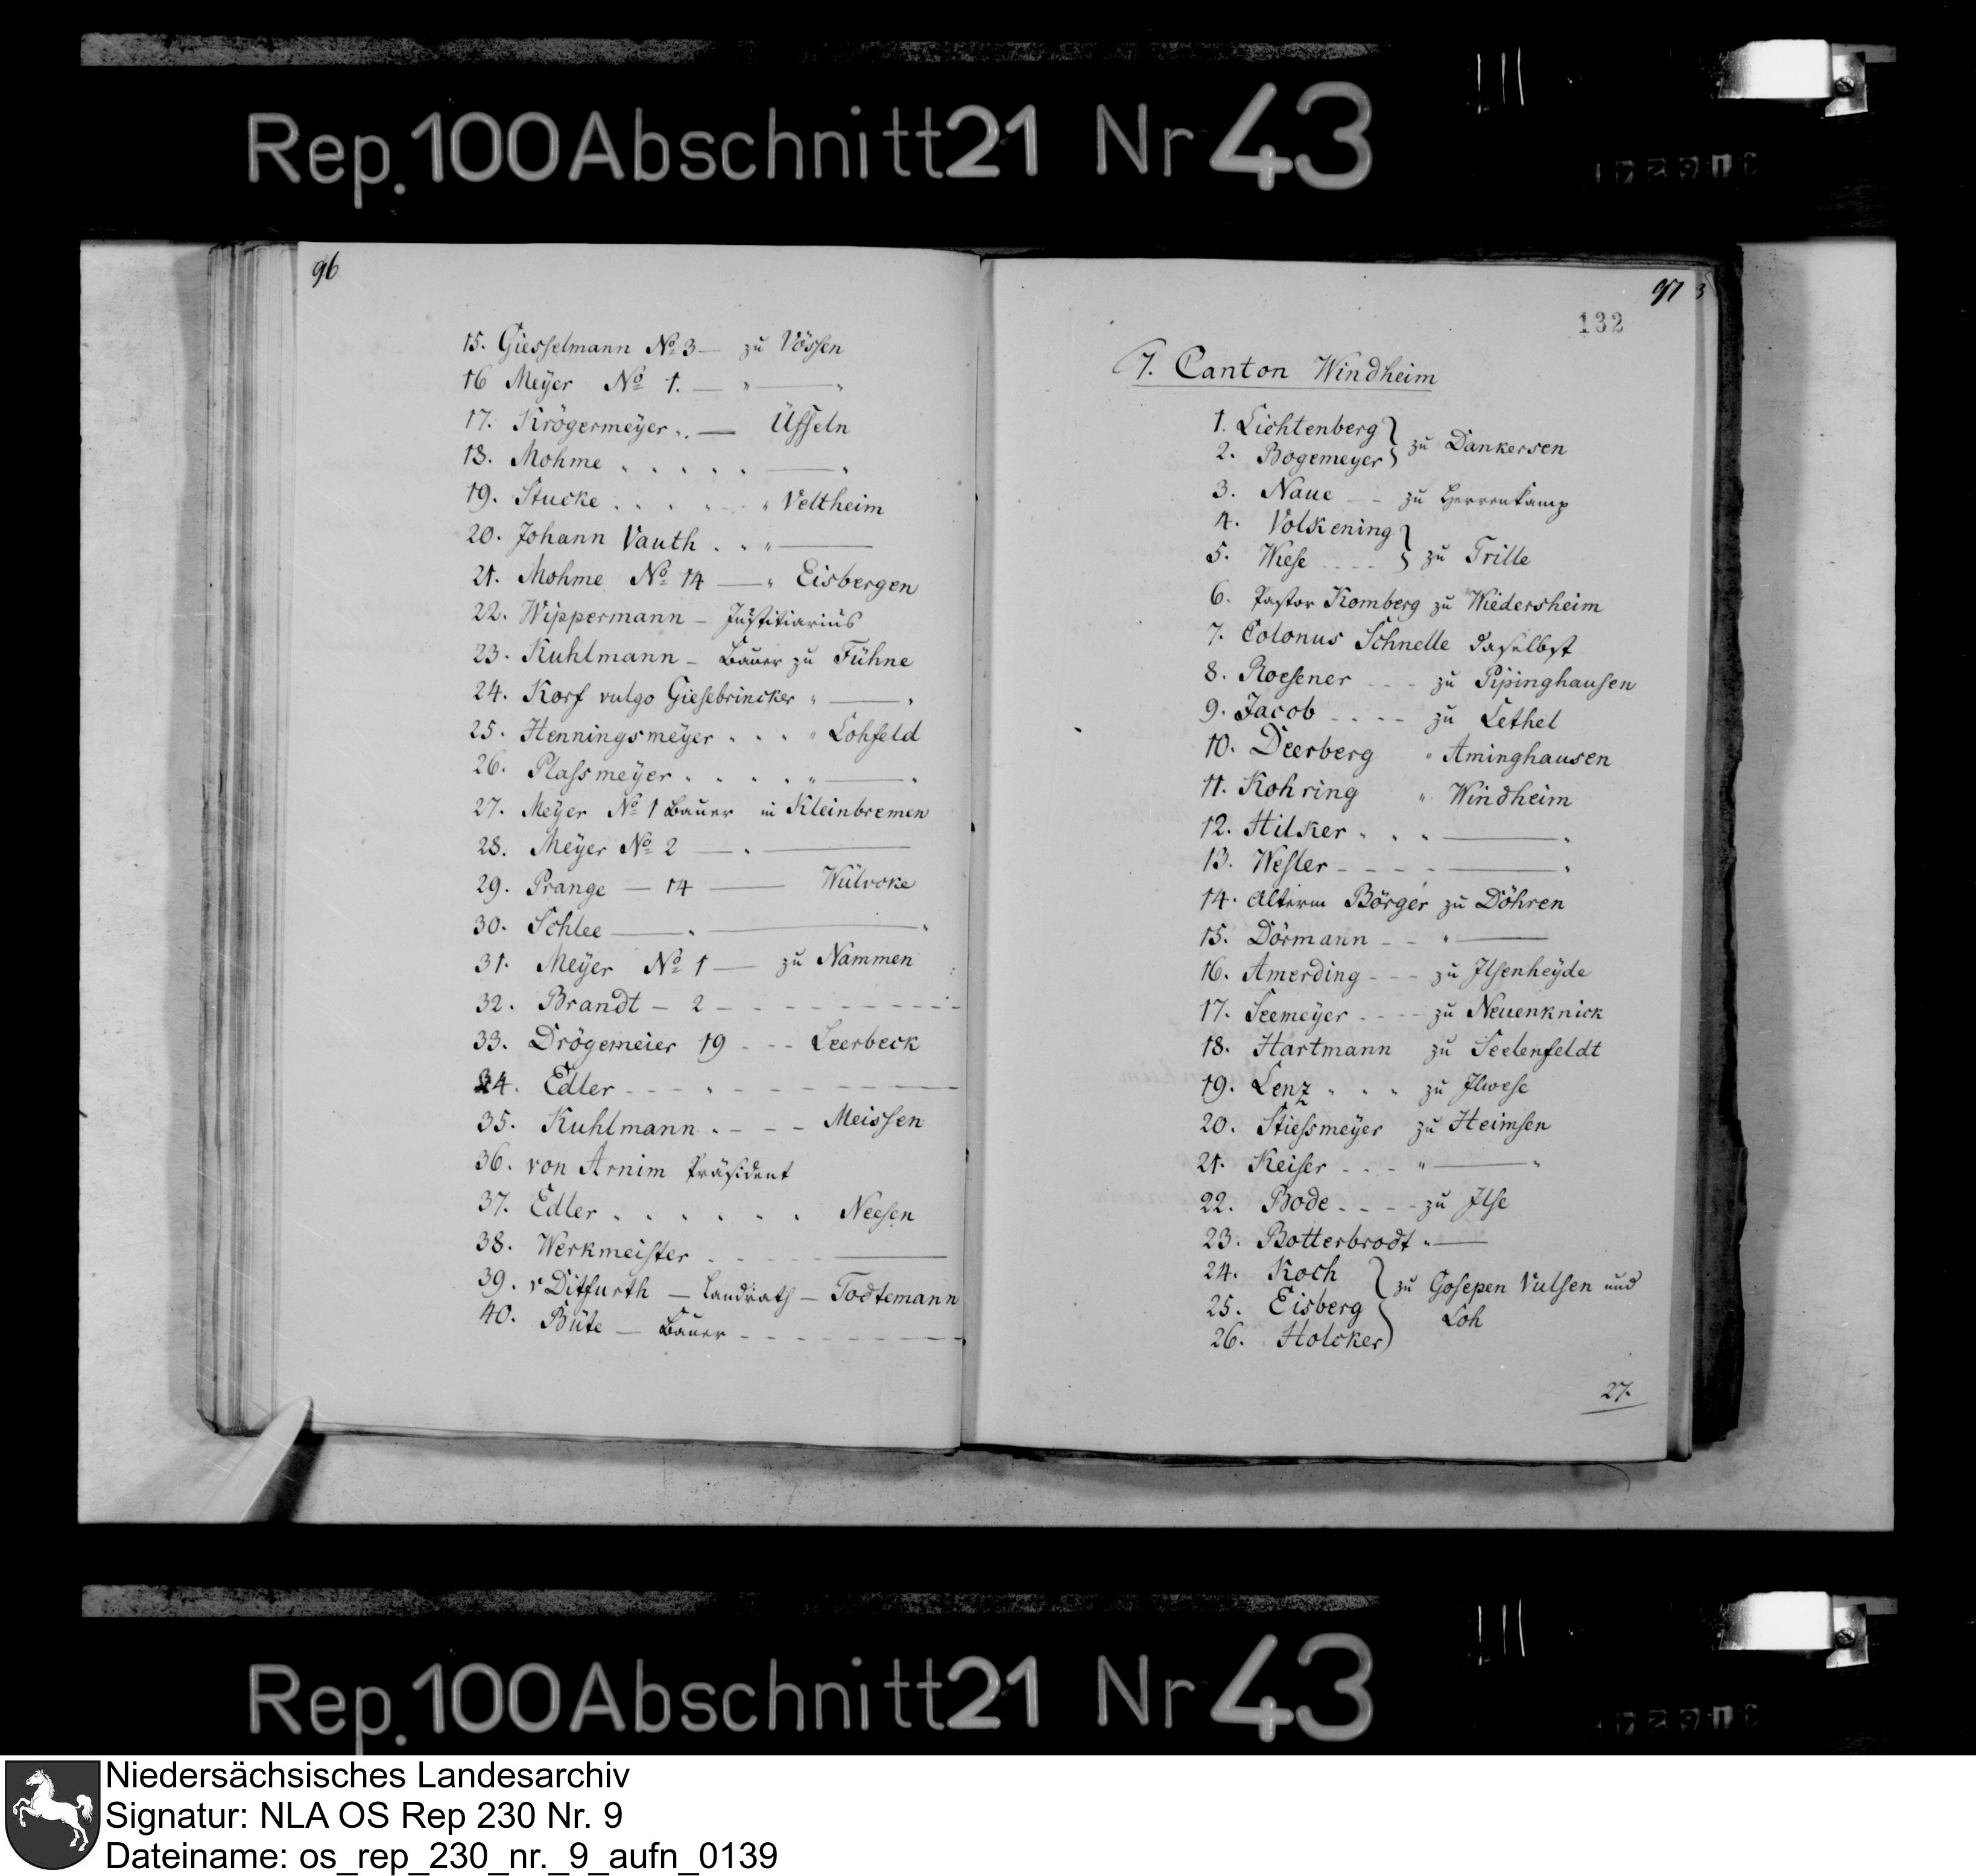 Rep.100 Abschnitt 21 Nr 43
96
15. Giesselmann No 3 — zu Vössen
16 Meÿer No 1. — " — "
17. Krögermeÿer . . — Üsseln
18. Mohme . . . . . — "
19. Stucke . . . . . " Veltheim
20. Johann Vauth . . " —
21. Mohme No 14 — " Eisbergen
22. Wippermann — Justitiarius
23. Kuhlmann — Bauer zu Fühne
24. Korf vulgo Giesebrincker " — "
25. Henningsmeÿer . . . " Lohfeld
26. Plassmeÿer . . . . " — "
27. Meÿer No 1 Bauer in Kleinbremen
28. Meÿer No 2 — " —
29. Prange — 14 — Wülvoke
30. Schlee — " — "
31. Meÿer No 1 — zu Nammen
32. Brandt — 2 - - - - - - - -
33. Drögemeier 19 - - - Leerbeck
34. Edler - - - " - - - - —
35. Kuhlmann . - - - Meissen
36. von Arnim Präsident
37. Edler . . . . . . Neesen
38. Werkmeister . - - - - —
39. v Ditfurth — Landrath — Todtemann
40. Büte — Bauer - - - - - - —
97 3
132
7. Canton Windheim
1. Lichtenberg
2. Bogemeyer } zu Dankersen
3. Naue - - zu Herrenkamp
4. Volkening
5. Wiese . . . . } zu Trille
6. Pastor Romberg zu Wiedersheim
7. Colonus Schnelle daselbst
8. Roesener - - - zu Pipinghausen
9. Jacob - - - - zu Lethel
10. Deerberg " Aminghausen
11. Kohring " Windheim
12. Hilker . . . — "
13. Wesler - - - - — "
14. Alterm Börger zu Döhren
15. Dörmann - - " —
16. Amerding - - - zu Ilsenheÿde
17. Seemeÿer - - - - zu Neuenknick
18. Hartmann zu Seelenfeldt
19. Lenz . . . zu Ilwese
20. Stiessmeÿer zu Heimsen
21. Keiser - - - " — "
22. Bode - - - - zu Ilse
23. Botterbrodt " —
24. Koch
25. Eisberg } zu Gosepen Vulsen und
26. Holcker Loh
27.
Rep.100 Abschnitt 21 Nr 43
Niedersächsisches Landesarchiv
Signatur: NLA OS Rep 230 Nr. 9
Dateiname: os_rep_230_nr._9_aufn_0139